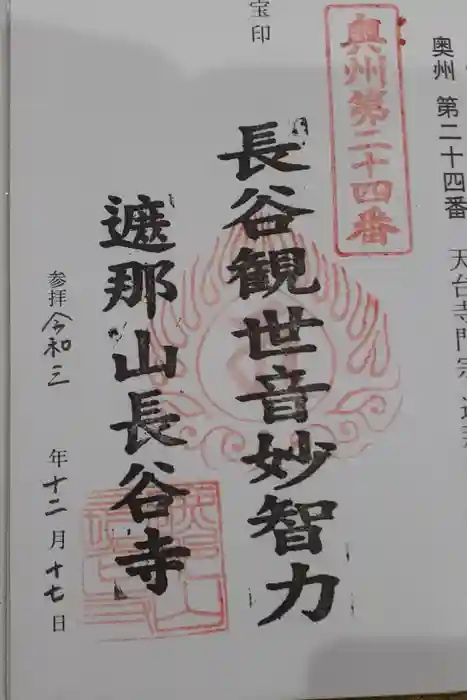 奥州 第二十四番 天台寺門宗
奥州第二十四番
宝印
長谷観世音妙智力
遮那山長谷寺
参拝 令和三 年 十二 月 十七 日